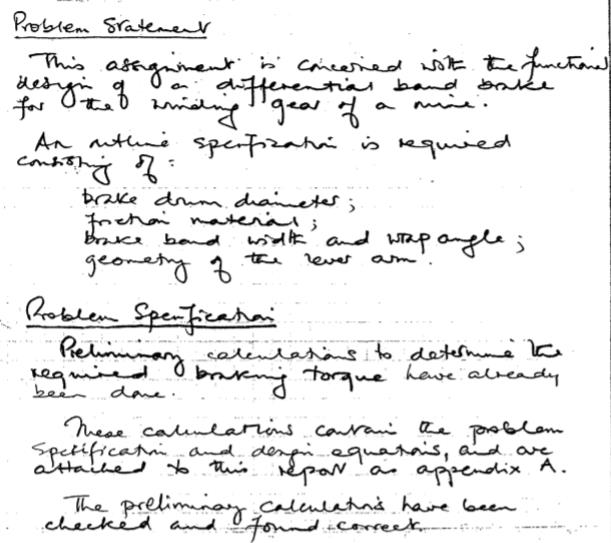 Problem Statement
This assignment is concerned with the functional
design of a differential band brake
for the winding gear of a mine.
An outline specification is required
consisting of:
brake drum diameter;
friction material;
brake band width and wrap angle;
geometry of the lever arm.
Problem Specification
Preliminary calculations to determine the
required braking torque have already
been done.
These calculations contain the problem
specification and design equations, and are
attached to this report as appendix A.
The preliminary calculations have been
checked and found correct.